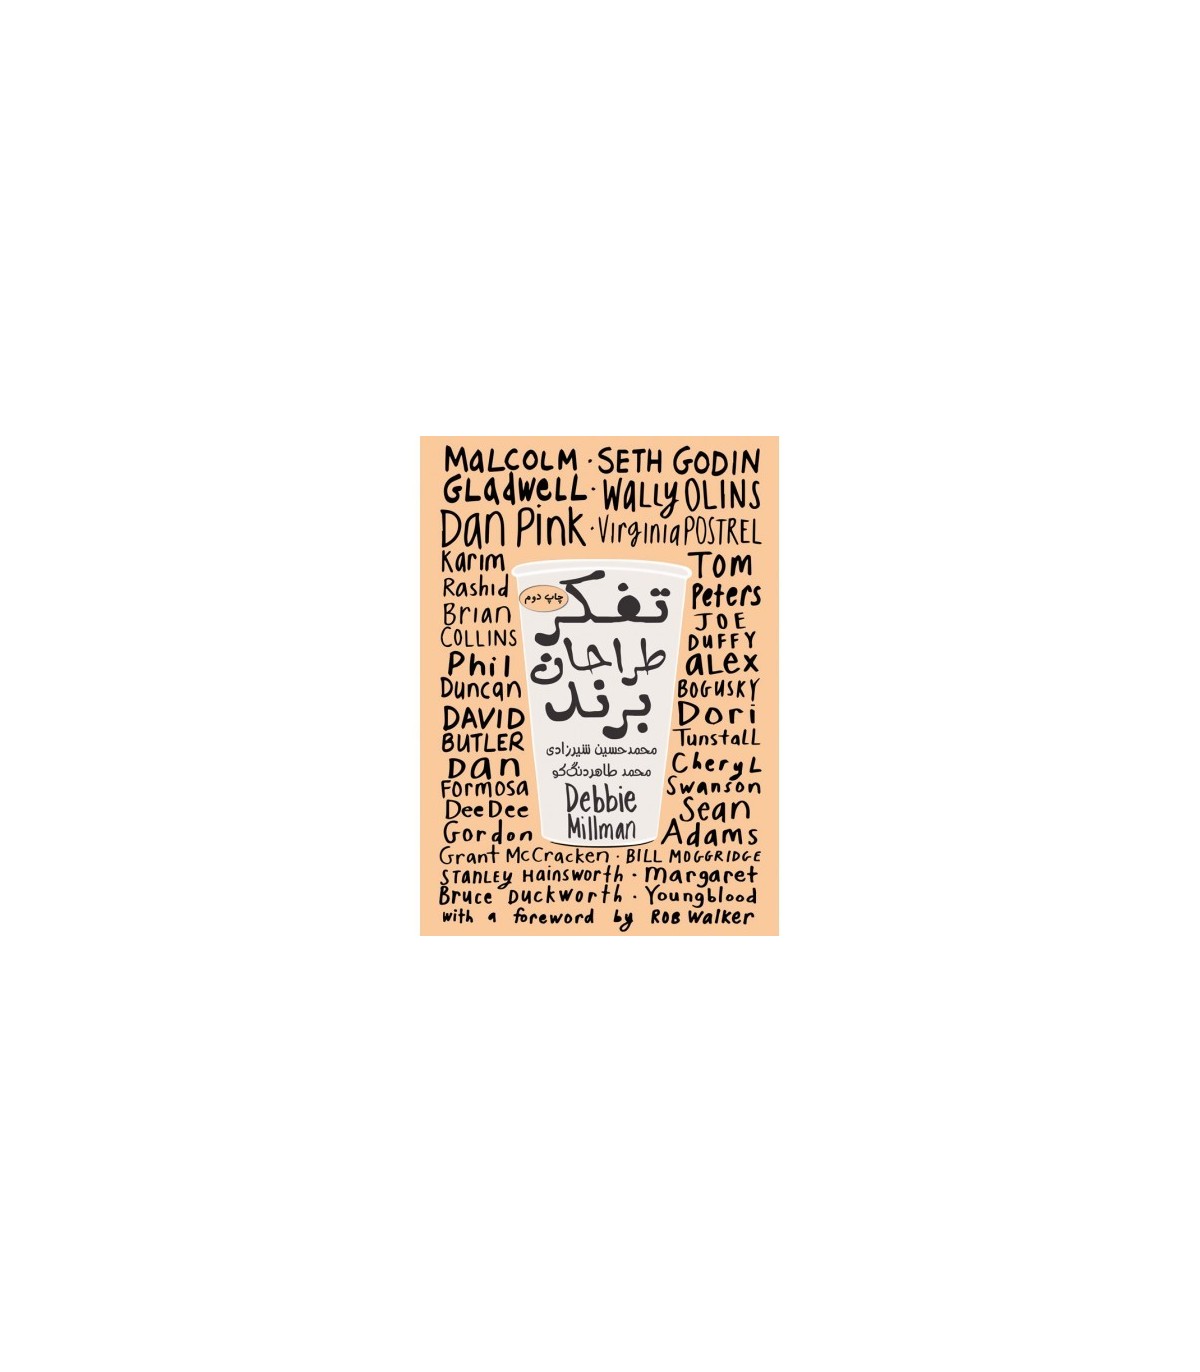 MaLCOLM · SETH GODIN
GLadweLL · WaLLy OLINS
Dan Pink · Virginia POSTREL
Karim
Rashid
Brian
COLLINS
Phil
Duncan
DAVID
BUTLER
Dan
Formosa
DeeDee
Gordon
چاپ دوم
تفکر
طراحان
برند
محمدحسین شیرزادی
محمد طاهر دنگ‌کو
Debbie
Millman
Tom
Peters
JOE
DUFFY
aLex
BOGUSKY
Dori
TunstaLL
CheryL
Swanson
Sean
Adams
Grant McCracken · BILL MOGGRIDGE
STANLEY Hainsworth · Margaret
Bruce Duckworth · Youngblood
with a foreword by ROB Walker